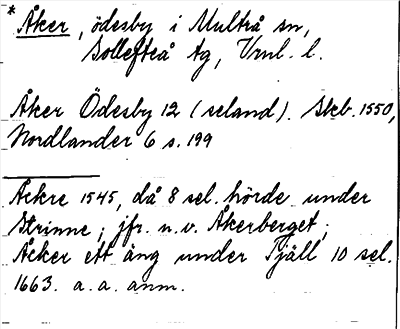 * Åker, ödesby i Multrå sn,
Sollefteå tg, Vrnl. l.
Åker Ödesby 12 (seland). Skb. 1550,
Nordlander 6 s. 199
Åckre 1545, då 8 sel. hörde under
Strinne; jfr. n.v. Åkerberget;
Åcker ett äng under Tjäll 10 sel.
1663. a. a. anm.